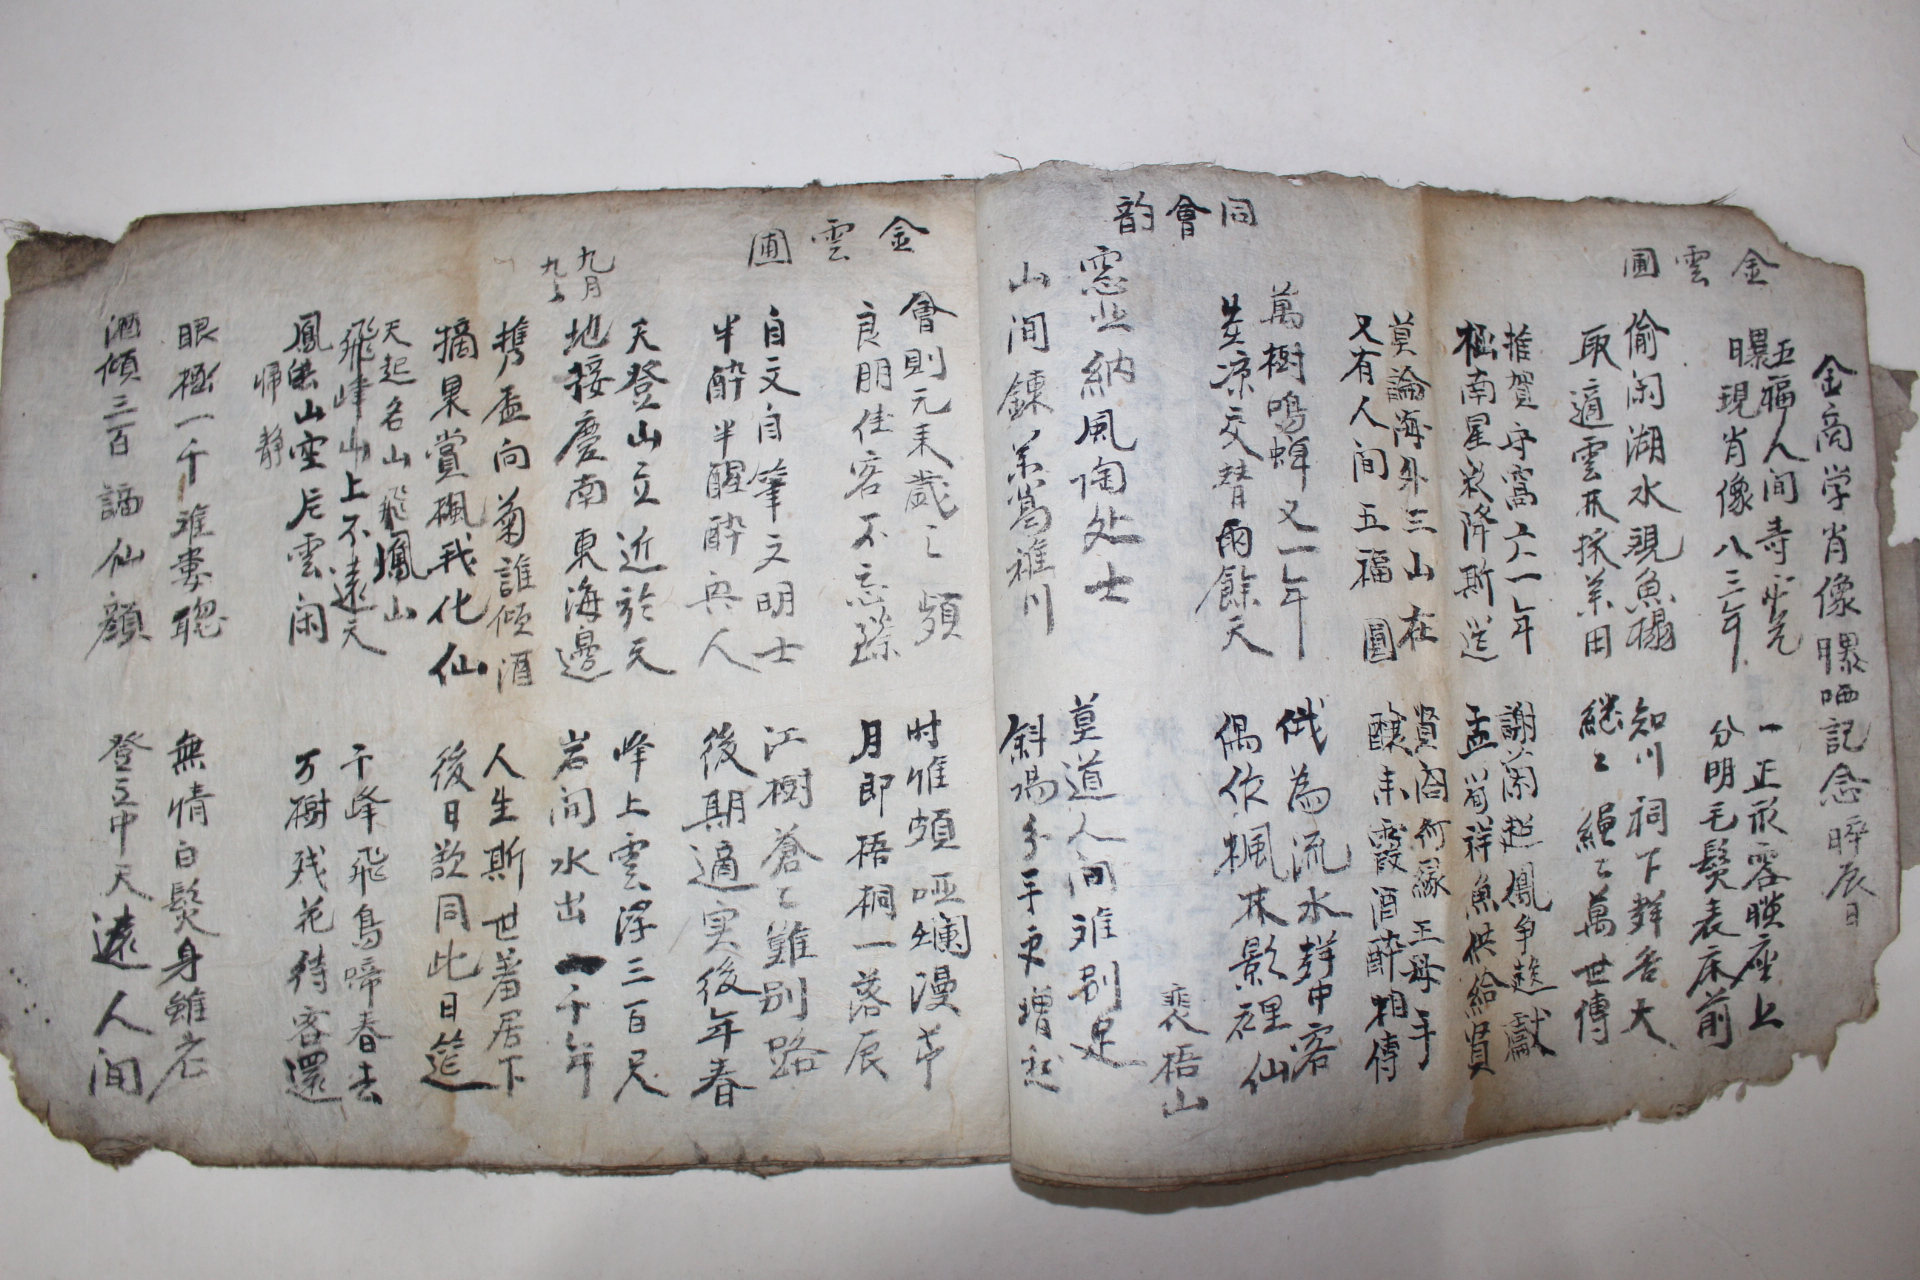 金商学肖像曝晒記念晬辰日
金雲圃
五福人間寺 一正衣容暎座上
曝現肖像八三年 分明毛髮表床前
偷闲湖水現魚榻 知川祠下群者大
取適雲林採菜田 繼々繩々萬世傳
推賀守窩六一年 謝 超鳳争趍獻
極南星彩降斯筵 孟筍祥魚供給賢
莫論海外三山在 賢閤何緣王母手
又有人间五福圓 釀来霞酒醉相傳
同會韵
萬樹鳴蟬又一年 俄為流水群中客
炎凉交替雨餘天 偶作楓林影裡仙
裵梧山
窓北納風陶处士 莫道人间难别足
山间鍊葛稚川 斜陽分手更增愁
金雲圃
會則元来歲之频 时惟頗 爛漫
良朋佳客不忘臻 月即梧桐一落辰
自文自筆文明士 江樹蒼々難别路
半醉半醒醉與人 後期適実後年春
九月九日
天登山立近於天 峰上雲浮三百尺
地接慶南東海邊 岩间水出一千年
携盃向菊誰傾酒 人生斯世羞居下
摘果賞楓我化仙 後日欲同此日筵
天起名山飛鳳山
飛峰山上不遠天 千峰飛鳥啼春去
鳳 山空片雲闲 万樹残花待客還
帰静
眼極一千难婁聰 無情白髮身雖老
酒傾三百謫仙顏 登立中天遠人间